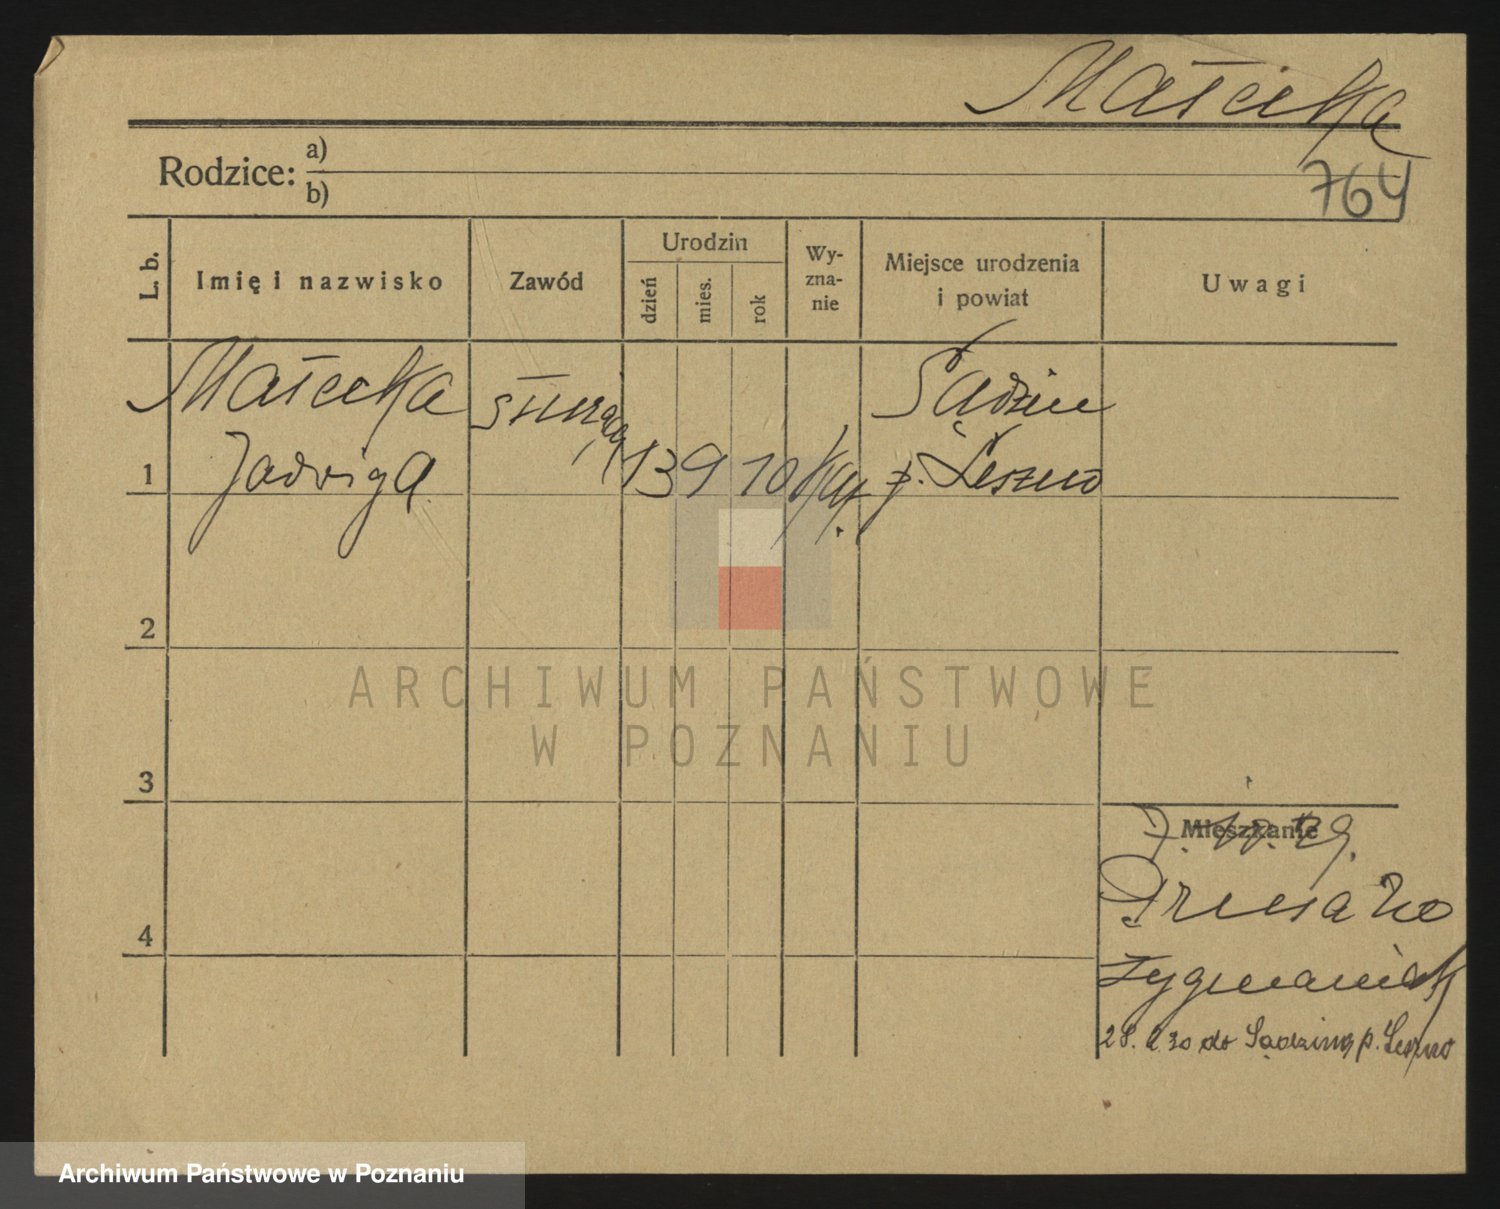 Małecka
764
Rodzice: a)
b)
L. b. Imię i nazwisko Zawód Urodzin dzień mies. rok Wy-zna-nie Miejsce urodzenia i powiat Uwagi
Małecka Sądzin
1 Jadwiga służąca 13 9 10 kat. p. Leszno
2
3
4
Mieszkanie
7. 10. 29.
Zygmaniak
28. 2. 30 do Sądzina p. Leszno
ARCHIWUM PAŃSTWOWE
W POZNANIU
Archiwum Państwowe w Poznaniu